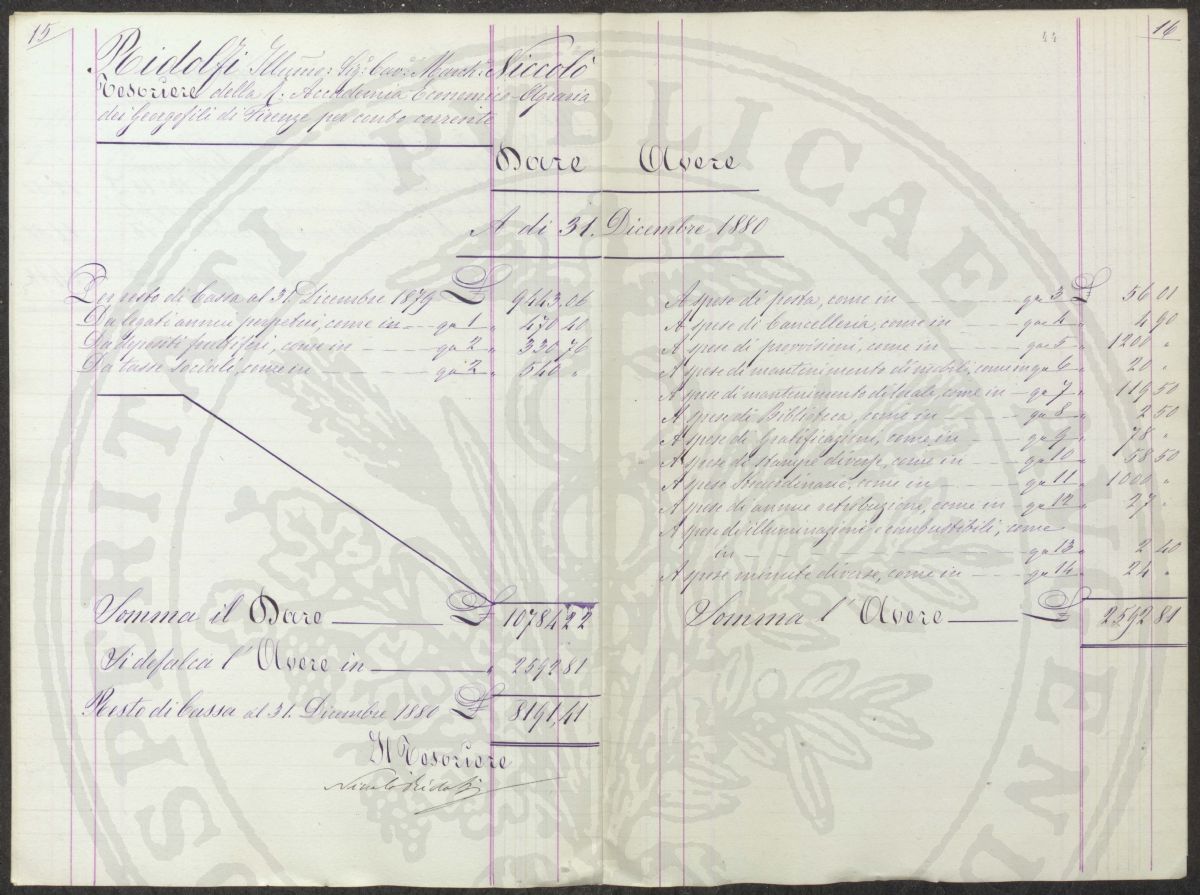 15
Ridolfi Illumo: Sigr. Cavr. March: Niccolò
Tesoriere della R. Accademia Economico-Agraria
dei Georgofili di Firenze per conto corrente
44
16
Dare Avere
A dì 31. Dicembre 1880
Per resto di Cassa al 31. Dicembre 1879 £ 9443.06
Da legati annui perpetui, come in - - qa 1 „ 470 40
Da depositi fruttiferi, come in - - - qa 2 „ 330,76
Da tasse sociali, come in - - - qa 2 „ 540 „
Somma il Dare £ 10784 22
Si defalca l' Avere in „ 2592 81
Resto di Cassa al 31. Dicembre 1880 £ 8191,41
Il Tesoriere
Niccolò Ridolfi
A spese di posta, come in - - - qa 3 £ 56 01
A spese di Cancelleria, come in - - - qa 4 „ 4 90
A spese di provvisioni, come in - - - qa 5 „ 1200 „
A spese di mantenimento di mobili, come in qa 6 „ 20 „
A spese di mantenimento di locale, come in - qa 7 „ 119 50
A spese di Biblioteca, come in - - - qa 8 „ 2 50
A spese di Gratificazioni, come in - - - qa 9 „ 78 „
A spese di stampe diverse, come in - - - qa 10 „ 58 50
A spese straordinarie, come in - - - qa 11 „ 1000 „
A spese di annue retribuzioni, come in - qa 12 „ 27 „
A spese di illuminazioni e combustibili, come
in - - - qa 13 „ 2 40
A spese minute diverse, come in - - - qa 14 „ 24 „
Somma l' Avere £ 2592 81
PROSPERITATI PUBLICAE AUGENDAE